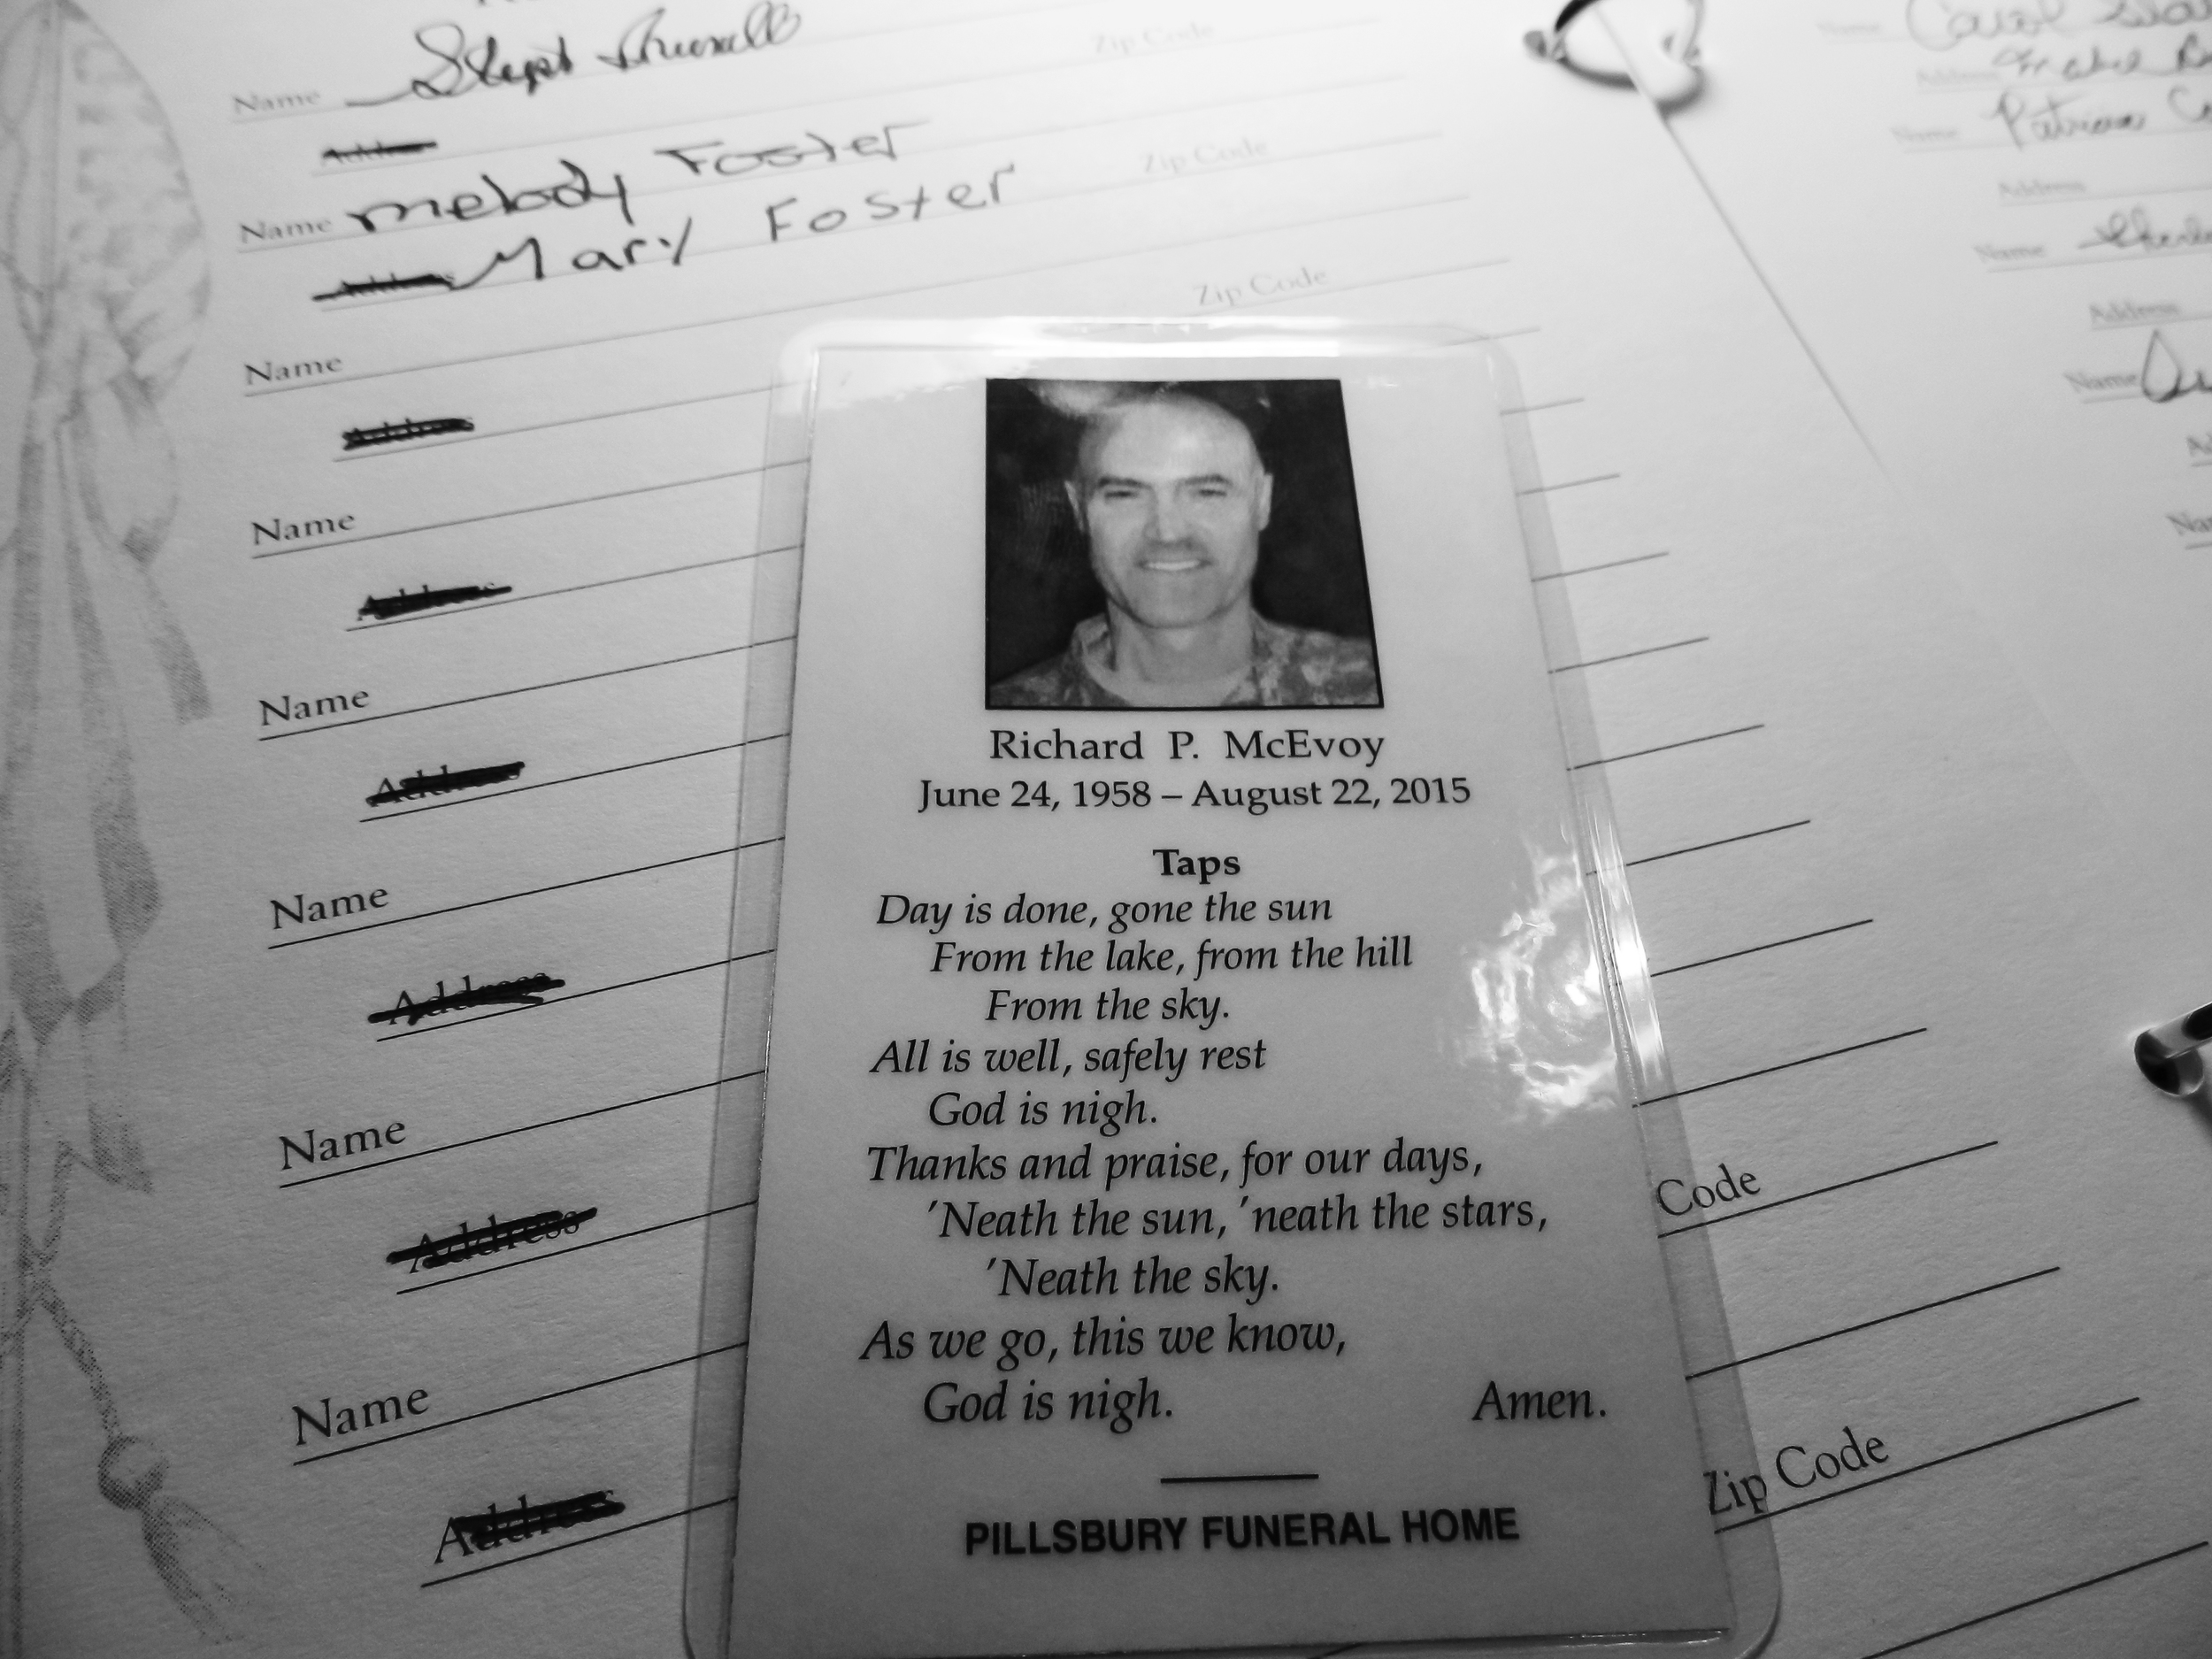 Name
Zip Code
Address
Name melody Foster
Zip Code
Address Mary Foster
Name
Zip Code
Address
Name
Address
Name
Address
Name
Address
Name
Code
Address
Name
Zip Code
Address
Richard P. McEvoy
June 24, 1958 – August 22, 2015
Taps
Day is done, gone the sun
From the lake, from the hill
From the sky.
All is well, safely rest
God is nigh.
Thanks and praise, for our days,
'Neath the sun, 'neath the stars,
'Neath the sky.
As we go, this we know,
God is nigh. Amen.
PILLSBURY FUNERAL HOME
Name Carol
Address
Name
Address
Name
Address
Name